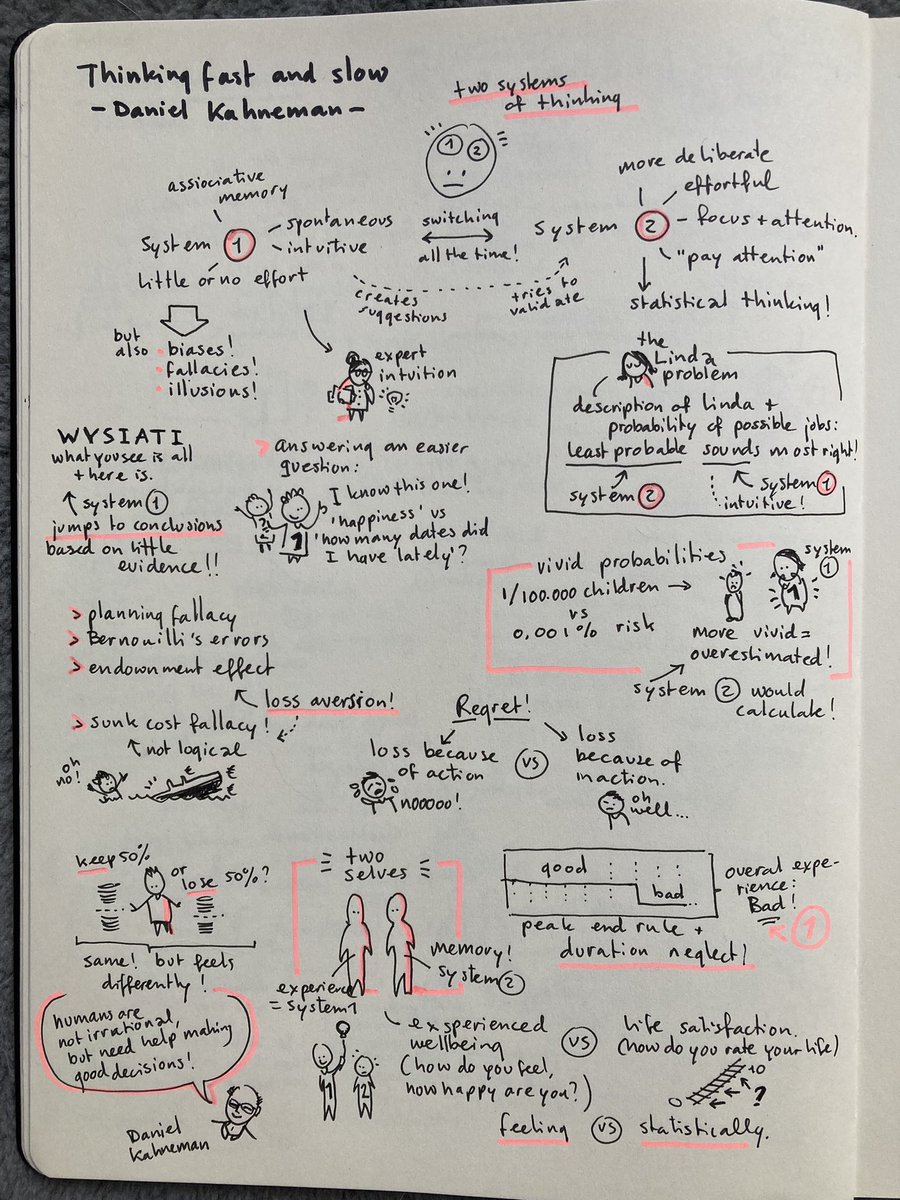 Thinking fast and slow
- Daniel Kahneman -
two systems
of thinking
1 2
assiociative
memory
System 1
spontaneous
intuitive
Little or no effort
switching
all the time!
creates
suggestions
tries to
validate
System 2
more deliberate
effortful
focus + attention.
"pay attention"
statistical thinking!
but
also
biases!
fallacies!
illusions!
expert
intuition
the
Linda
problem
description of linda +
probability of possible jobs:
least probable sounds most right!
system 2
system 1
intuitive!
WYSIATI
what you see is all
there is.
system 1
jumps to conclusions
based on little
evidence!!
> answering an easier
question:
2 1
I know this one!
'happiness' vs
'how many dates did
I have 'lately'?
vivid probabilities
1/100.000 children
vs
0,001% risk
system
1
1
more vivid =
overestimated!
system 2 would
calculate!
> planning fallacy
> Bernouilli's errors
> endownment effect
loss aversion!
> sunk cost fallacy!
not logical
oh
no!
€
€
€
Regret!
loss because
of action
nooooo!
vs
loss
because of
inaction.
oh
well...
keep 50%
or
lose 50%?
same! but feels
differently!
humans are
not irrational,
but need help making
good decisions!
Daniel
Kahneman
two
selves
experience
= system 1
memory!
system 2
1 2
good
bad
overal expe-
rience:
Bad!
1
peak end rule +
duration neglect!
exsperienced
wellbeing
(how do you feel,
how happy are you?)
vs
life satisfaction.
(how do you rate your life)
0
10
?
feeling vs statistically.